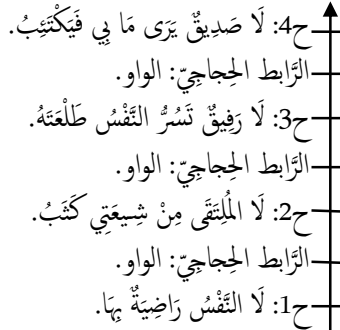 ح4: لَا صَدِيقٌ يَرَى مَا بِي فَيَكْتَئِبُ.
الرَّابط الحِجاجِيّ: الواو.
ح3: لَا رَفِيقٌ تَسُرُّ النَّفْسُ طَلْعَتَهُ.
الرَّابط الحِجاجِيّ: الواو.
ح2: لَا المُلِتَقَى مِنْ شِيعَتِي كَثَبُ.
الرَّابط الحِجاجِيّ: الواو.
ح1: لَا النَّفْسُ رَاضِيَةٌ بِهَا.